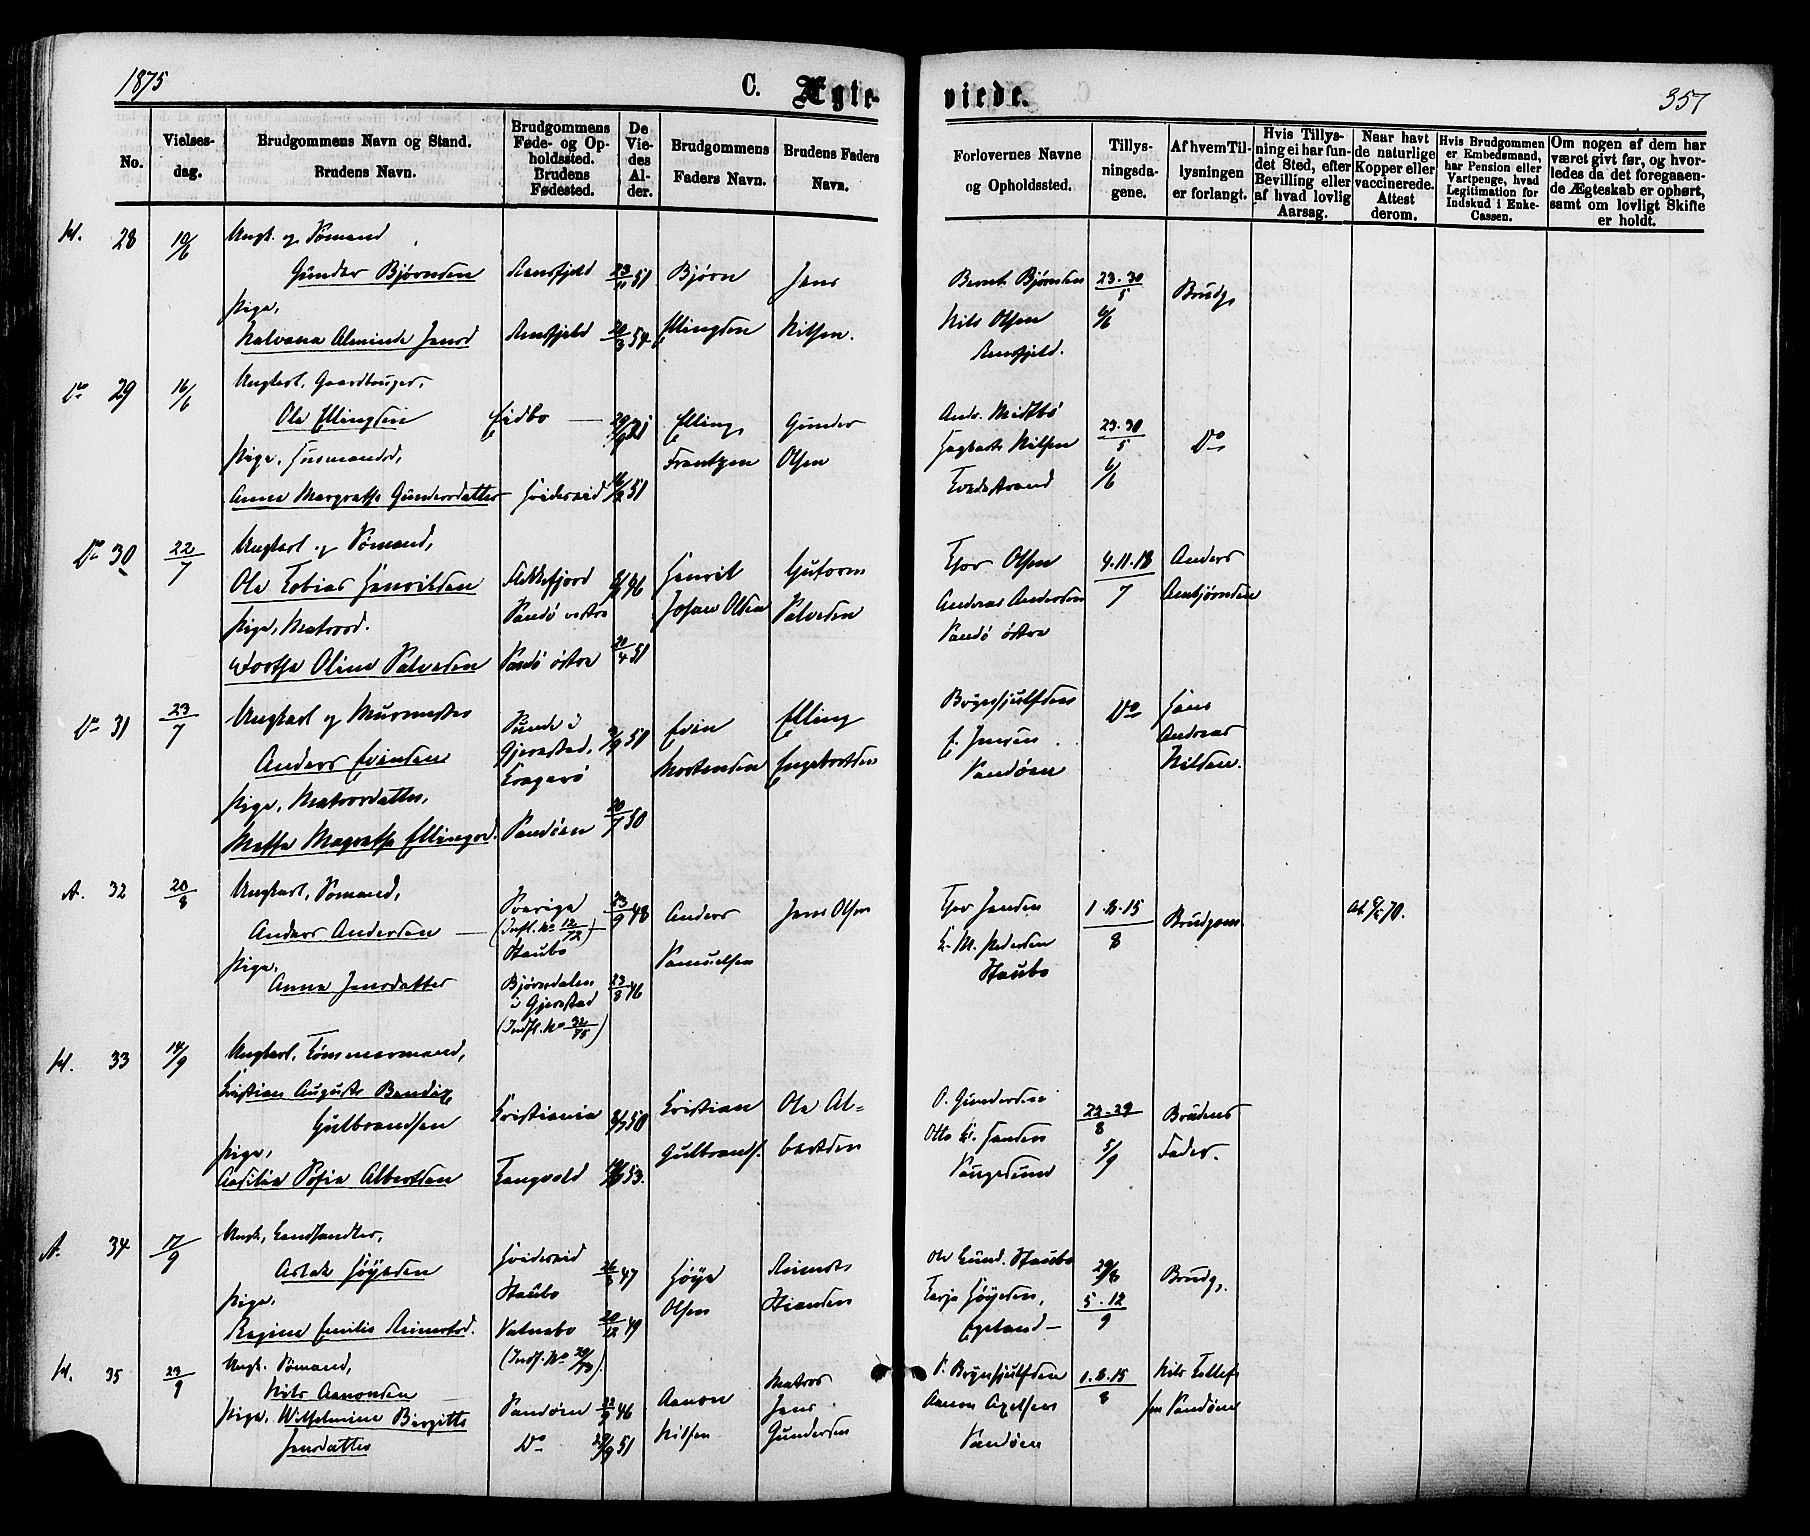 1875
C. Ægte-
viede.
357
No.
Vielses-
dag.
Brudgommens Navn og Stand.
Brudens Navn.
Brudgommens
Føde- og Op-
holdssted.
Brudens
Fødested.
De
Vie-
des
Al-
der.
Brudgommens
Faders Navn.
Brudens Faders
Navn.
Forlovernes Navne
og Opholdssted.
Tillys-
ningsda-
gene.
Af hvem Til-
lysningen
er forlangt.
Hvis Tillys-
ning ei har fun-
det Sted, efter
Bevilling eller
af hvad lovlig
Aarsag.
Naar havt
de naturlige
Kopper eller
vaccinerede.
Attest
derom.
Hvis Brudgommen
er Embedsmand,
har Pension eller
Vartpenge, hvad
Legitimation for
Indskud i Enke-
Cassen.
Om nogen af dem har
været givt før, og hvor-
ledes da det foregaaen-
de Ægteskab er ophørt,
samt om lovligt Skifte
er holdt.
28
10/6
Ungk. og Sømand
Gunder Bjørnsen
Pige,
Alminde Jensd
23/11 51
20/3 54
Bjørn
Ellingsen
Jens
Nilsen.
Bernt Bjørnsen
Nils Olsen
23. 30
5
6/6
Brudg.
Do 29
16/6
Ungkarl, Gaardbruger,
Ole Ellingsen
Pige, Husmandsd,
Anna Margrathe Gundersdatter
Eidbo
Hvidevid
51
Elling
Frantzen
Gunder
Olsen
Andr. Midtbö
Nilsen
Tvedestrand
23. 30
5
6/6
Do
Do 30
22/7
Ungkarl og Sømand,
Ole Tobias Henriksen
Pige, Matrosd.
Dorthe Oline Salvesen
Flekkefjord
Sandö vestre
Sandö östre
46
20/4 51
Henrik
Johan Olsen
Guttorm
Salvesen
Thor Olsen
Andreas Andersen
Sandö östre
4. 11. 18
7
Anders
Arnbjørnsen
Do 31
23/7
Ungkarl og Murmester
Anders Evensen
Pige, Matrosdatter,
Mathe Magrathe Ellingsd.
Sunde i
Gjerestad,
Kragerö
Sandöen
51
20/7 50
Even
Mortensen
Elling
Engebretsen
E. Jensen
Sandöen
Do
Hans
Andreas
Nilsen.
A. 32
20/8
Ungkarl, Sømand,
Anders Andersen
Pige,
Anna Jensdatter
Sverige
(Indfl. No 12/72)
Staubo
Bjørndalen
i Gjerestad
(Indfl. No 32/75)
23/9 48
23/8 46
Anders
Samuelsen
Jens Olsen
Thor Jensen
K. M. Pedersen
Staubo
1. 8. 15
8
Brudgom.
70.
33
14/9
Ungkarl, Tømmermand,
Kristian August Bendix
Gulbrandsen
Pige,
Cecilia Sofie Albertsen
Kristiania
Langvold
50
53.
Kristian
Gulbrands.
Ole Al=
bertsen
O. Gundersen
Otto Kr. Hansen
Sangesund
22. 29
8
5/9
Brudens
Fader.
A. 34
17/9
Ungk, Landhandler,
Aslak Höyesen
Pige,
Regine Emilie Reinertsd.
Hvidevid
Staubo
Vatnebo
(Indf. No 29/73)
47
20/12 49
Höye
Olsen
Reinert
Stiansen
Ole Gund. Staubo
Terje Höyesen,
Egeland
29/8
5. 12
9
Brudg.
35
23/9
Ungk. Sømand,
Nils Aanonsen
Pige, Wilhelmine Birgitte
Jensdatter
Sandöen
Do
22/9 46
51
Aanon
Nilsen
Matros
Jens
Gundersen
Aanon Axelsen
Sandöen
1. 8. 15
8
Nils Tellef
sen Sandöen